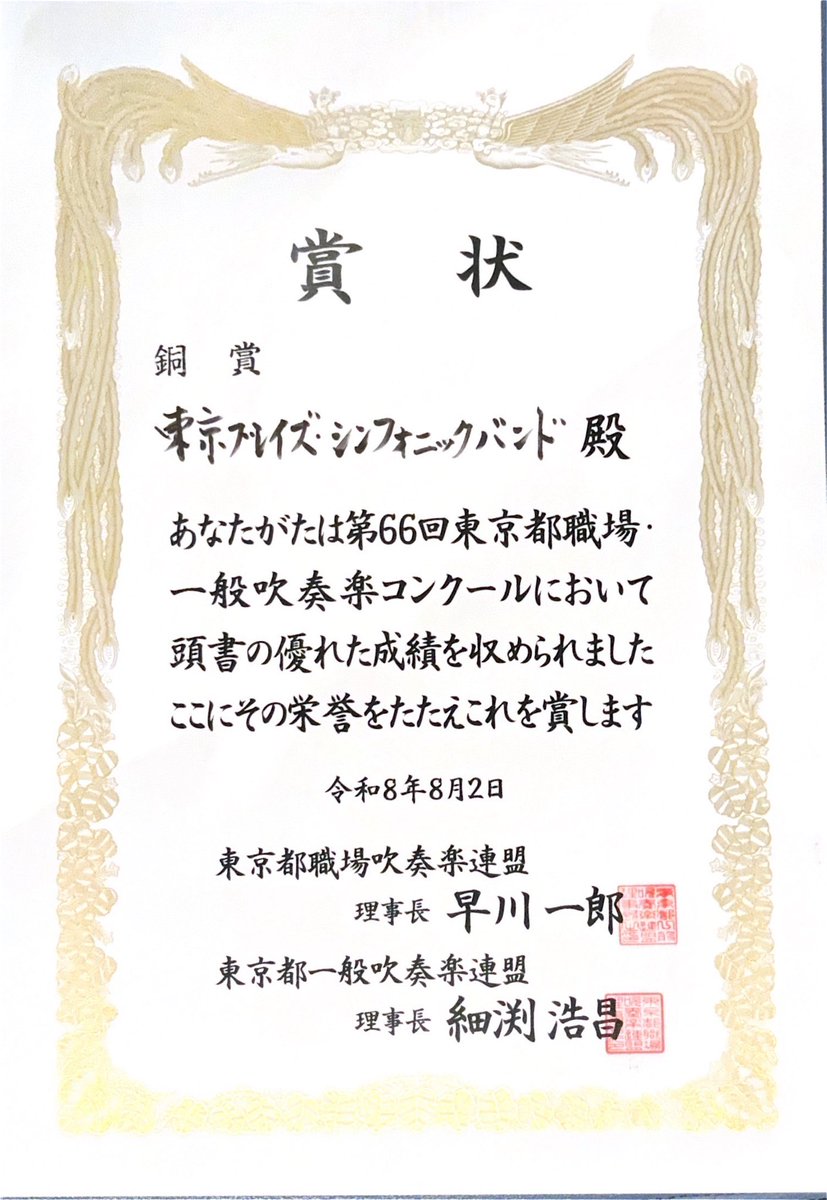 賞状
銅賞
東京ブレイズ・シンフォニックバンド 殿
あなたがたは第66回東京都職場・
一般吹奏楽コンクールにおいて
頭書の優れた成績を収められました
ここにその栄誉をたたえこれを賞します
令和8年8月2日
東京都職場吹奏楽連盟
理事長 早川一郎
東京都一般吹奏楽連盟
理事長 細渕浩昌